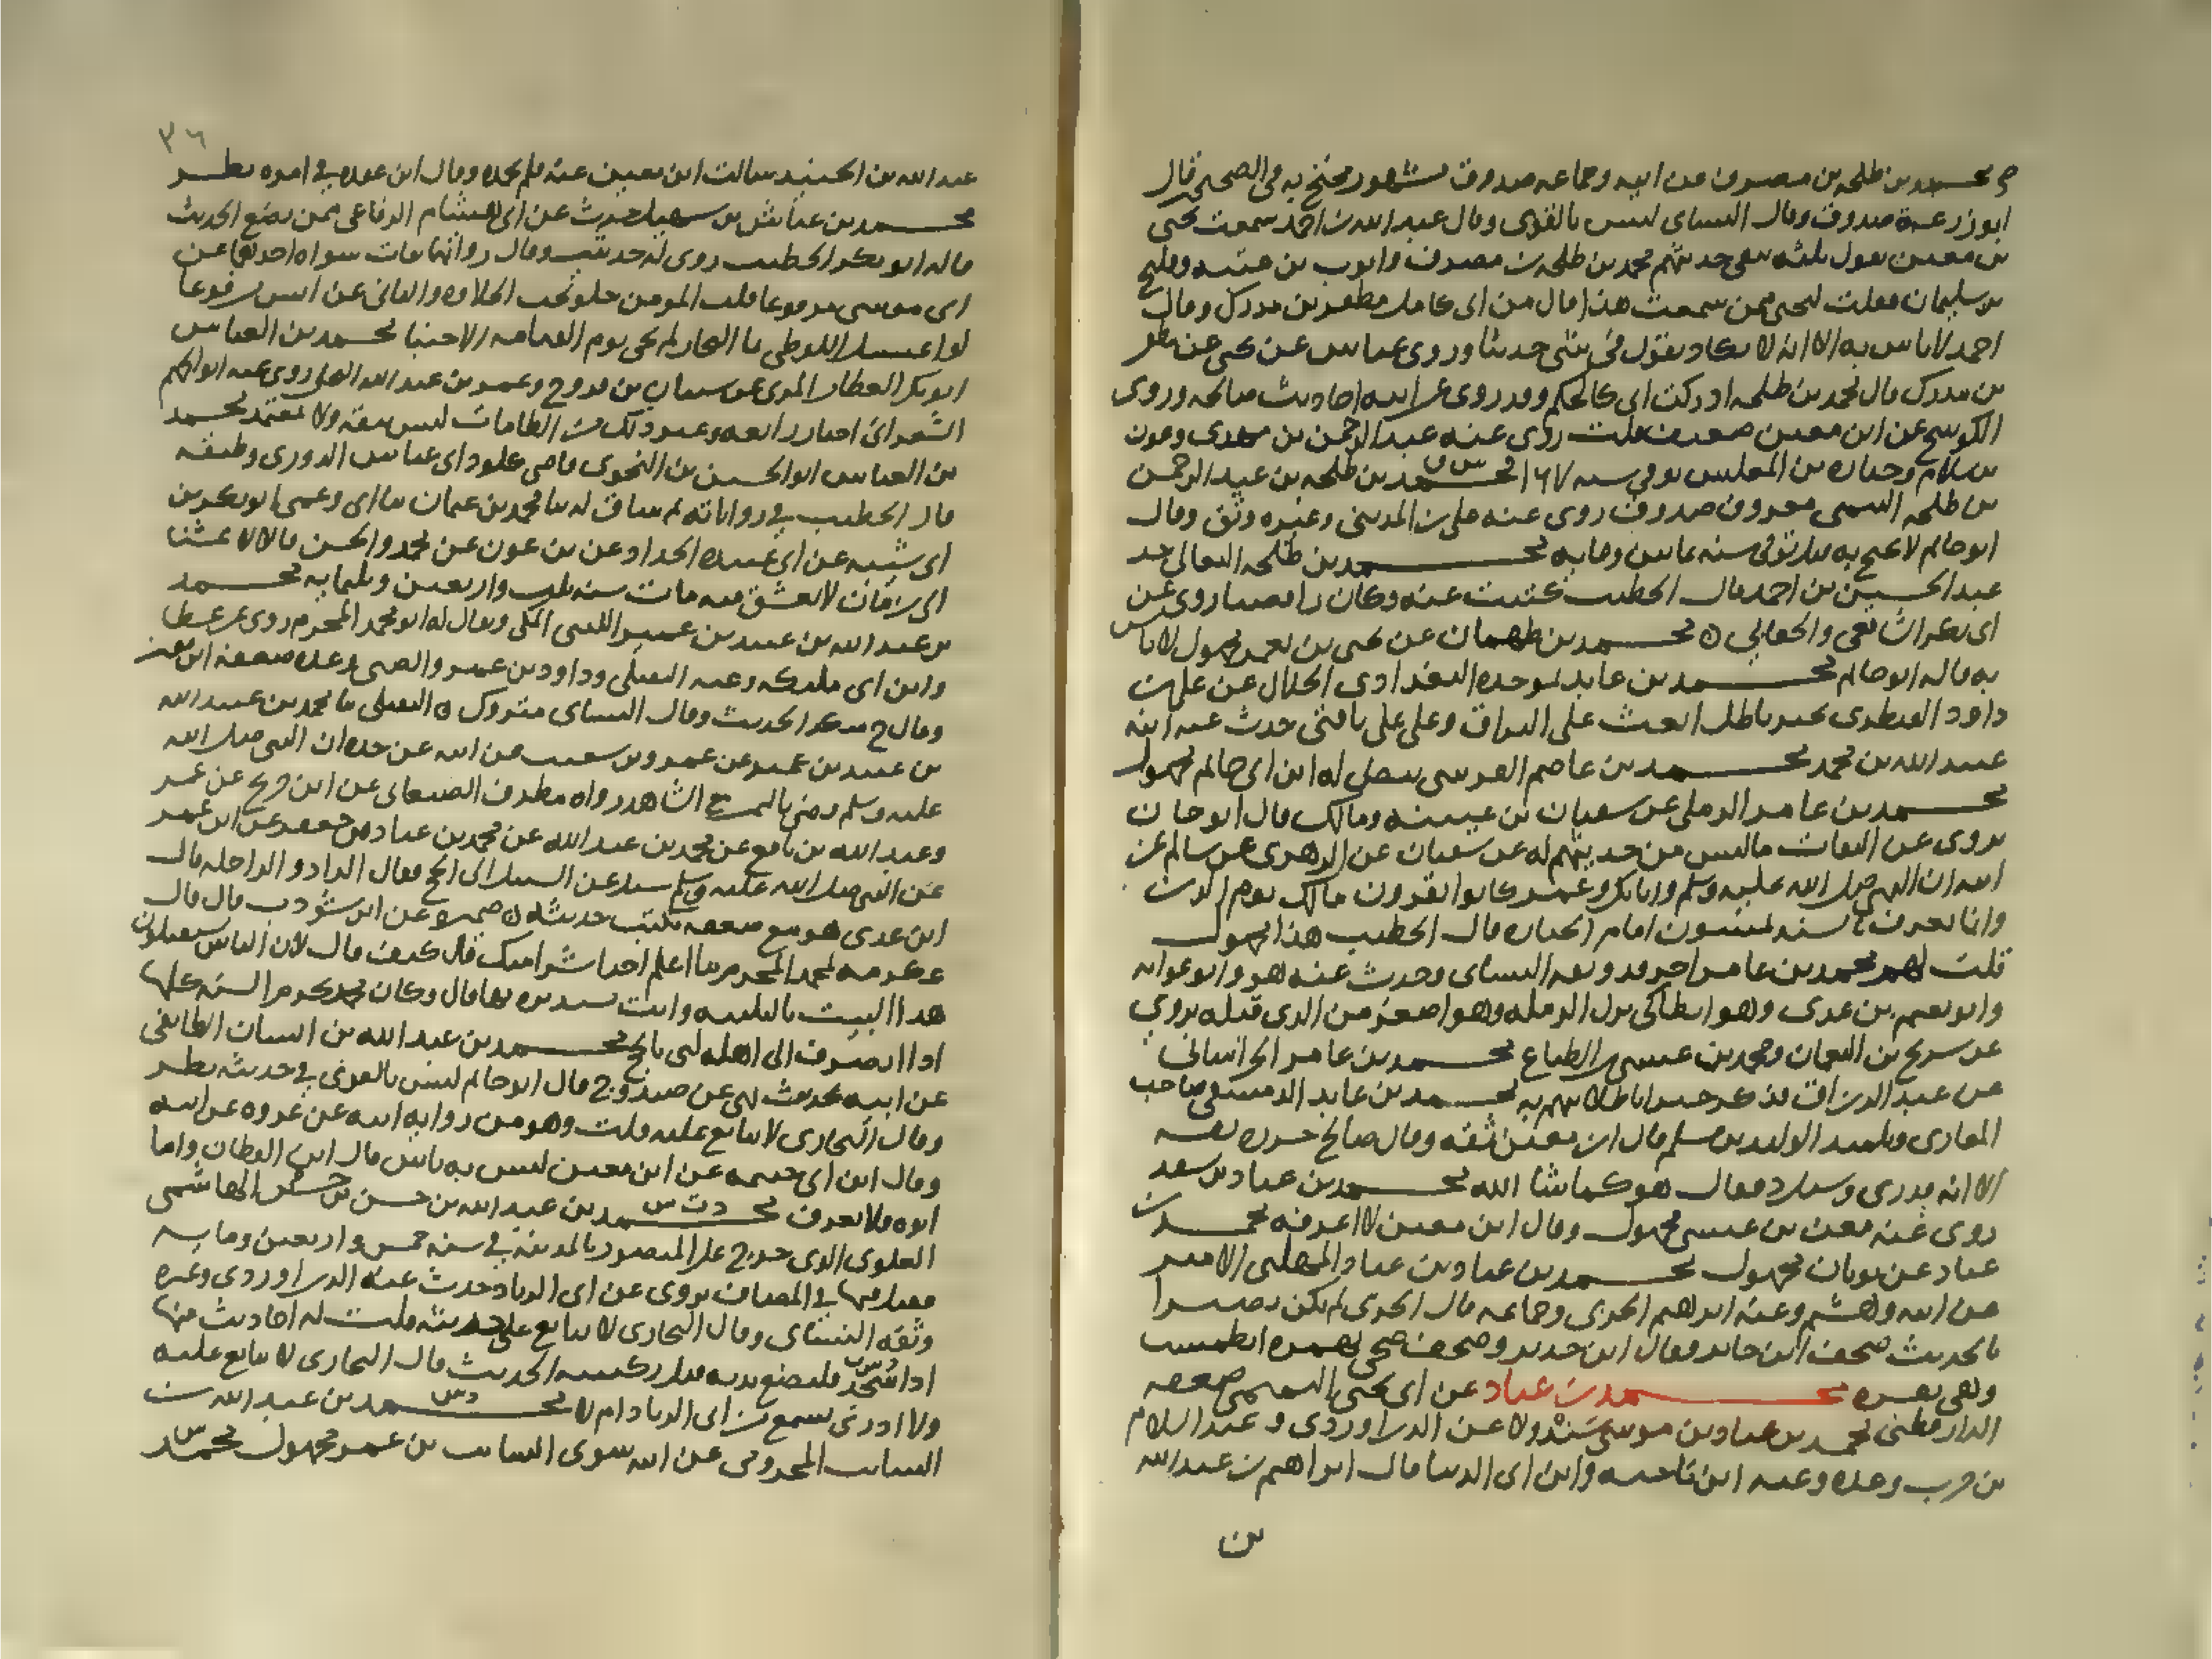 محمد بن طلحه بن مصرف عن ابيه وجماعه صدوق مشهور محتج به في الصحيحين قال
ابو زرعة صدوق وقال النساى ليس بالقوى وقال عبد الله بن احمد سمعت يحيى
بن معين يقول ثلثه يتقى حديثهم محمد بن طلحه بن مصرف وايوب بن عتبه وفليح
بن سليمان فقلت ليحيى ممن سمعت هذا قال من ابى كامل مظفر بن مدرك وقال
احمد لا باس به الا انه لا يكاد يقول في شى حدثنا وروى عباس عن يحيى عن مظفر
بن مدرك قال محمد بن طلحه ادركت ابى كالحلم وقد روى عن ابيه احاديث صالحه وروى
الكوسج عن ابن معين صالح قلت روى عنه عبد الرحمن بن مهدى وعون
بن سلام وجباره بن المغلس توفي سنه ١٦٧ محمد بن طلحه بن عبد الرحمن
بن طلحه التيمى معروف صدوق روى عنه على بن المدينى وغيره وثق وقال
ابو حاتم لا يحتج به توفى سنه ثمانين ومايه محمد بن طلحه النعالى جد
عبد الحسين بن احمد قال الخطيب كتبت عنه وكان رافضيا روى عن
ابى بكر الشافعى والجعابي محمد بن طهمان عن يحيى بن يعمر مجهول لا باس
به قاله ابو حاتم محمد بن عابد بموحده البغدادى الخلال عن على بن
داود القنطرى بخبر باطل ابعث على البراق وعلى على ناقتى حدث عنه ابنه
عبيد الله بن محمد محمد بن عاصم القرسى بيض له ابن ابى حاتم مجهول
محمد بن عامر الرملى عن سفيان بن عيينه ومالك قال ابو حبان
يروى عن الثقات ما ليس من حديثهم له عن سفيان عن الزهرى عن سالم عن
ابيه ان النبى صلى الله عليه وسلم وابا بكر وعمر كانوا يقرون مالك يوم الدين
وانما يعرف بالسند يمشون امام الجنازه قال الخطيب هذا مجهول
قلت لهم محمد بن عامر اخر قد وثقه النساى وحدث عنه هو وابو عوانه
وابو نعيم بن عدى وهو انطاكى نزل الرمله وهو اصغر من الذى قبله يروي
عن سريج بن النعمان ومحمد بن عيسى بن الطباع محمد بن عامر الخراسانى
عن عبد الرزاق فذكر خبرا باطلا يتهم به محمد بن عايد الدمشقى صاحب
المغازى وتلميذ الوليد بن مسلم قال ابن معين ثقه وقال صالح جزره ثقه
الا انه قدرى وسئل دفقال هو كما شا الله محمد بن عباد بن سعد
روى عنه معن بن عيسى مجهول وقال ابن معين لا اعرفه محمد بن
عباد عن ثوبان مجهول محمد بن عباد بن عباد المهلبى الامير
عن ابيه وهشيم وعنه ابراهيم الحربى وجماعه قال الحربى لم يكن بصيرا
بالحديث صحف ابن جابر فقال ابن حدير وصحف ضحى ببقره انطمست
وهى بقره محمد بن عباد عن ابى يحيى التيمى ضعفه
الدارقطنى محمد بن عباد بن موسى سندولا عن الدراوردى وعبد السلام
بن حرب وعده وعنه ابن ناجيه وابن ابى الدنيا قال ابراهيم بن عبد الله
بن
٣٦
عبد الله بن الجنيد سالت ابن معين عنه فلم يحمده وقال ابن عقده في امره نظر
محمد بن عباش بن سهيل حدث عن ابى هشام الرفاعى ممن يضع الحديث
قاله ابو بكر الخطيب روى له حديثين وقال رواتهما ثقات سواه احدهما عن
ابى موسى مرفوعا قلب المومن حلو يحب الحلاوه والثانى عن انس مرفوعا
لو اغتسل اللوطى بماء البحار لم يجى يوم القيامه الا جنبا محمد بن العباس
ابو بكر العطار المرى عن شيبان بن فروخ وعمر بن عبد الله روى عنه ابو الجهم
الشعرانى اخبار رابعه وغير ذلك من الطامات ليس بثقه ولا معتمد محمد
بن العباس ابو الحسين بن النحوى قاضى علود ابى عباس الدورى وطبقته
قال الخطيب في رواياته ثم ساق له ثنا محمد بن عثمان ثنا ابى وعمى ابو بكر بن
ابى شيبه عن ابى عبيده الحداد عن بن عون عن محمد والحسن قالا لا عشنا
الى زمان لا يعشق فيه مات سنه ثلث واربعين وثلثمايه محمد
بن عبد الله بن عبيد بن عمير الليثى المكى ويقال له ابو محمد المحرم روى عن عطا
وابن ابى مليكه وعنه النفيلى وداود بن عمير والضبى وعده ضعفه ابن معين
وقال خ منكر الحديث وقال النساى متروك النفيلى ثنا محمد بن عبد الله
بن عبيد بن عمير عن عمرو بن شعيب عن ابيه عن جده ان النبى صلى الله
عليه وسلم قضى باليمين مع الشاهد رواه مطرف الصنعانى عن ابن جريج عن عمر
وعبد الله بن نافع عن محمد بن عبد الله عن محمد بن عباد بن جعفر عن ابن عمر
عن النبى صلى الله عليه وسلم سئل عن السبيل الى الحج فقال الزاد والراحله قال
ابن عدى هو مع ضعفه يكتب حديثه ضمره عن ابن شوذب قال قال
عكرمه لمحمد المحرم ما اعلم احدا شرا منك قال كيف قال لان الناس يستقبلون
هذا البيت بالتلبيه وانت تستدبره بها قال وكان محمد يحرم السنه كلها
اذا انصرف الى اهله لبى بالحج محمد بن عبد الله بن انسان الطايفى
عن ابيه بحديث فى عن صيد وج قال ابو حاتم ليس بالقوى في حديثه نظر
وقال البخارى لا يتابع عليه قلت وهو من روايه ابيه عن عروه عن ابيه
وقال ابن ابى خيثمه عن ابن معين ليس به باس قال ابن القطان واما
ابوه فلا يعرف دت س محمد بن عبد الله بن حسن بن حسن الهاشمى
العلوى الذى خرج على المنصور بالمدينة في سنه خمس واربعين ومايه
فقتل فيها في المصاف يروى عن ابى الزناد وحدث عنه الدراوردى وغيره
وثقه النساى وقال البخارى لا يتابع على حديثه قلت له احاديث منها
اذا سجد فليضع يديه قبل ركبتيه الحديث قال البخارى لا يتابع عليه
ولا ادرى سمع من ابى الزناد ام لا دس محمد بن عبد الله بن
السائب المخزومى عن ابيه سوى السائب بن عمر مجهول محمد